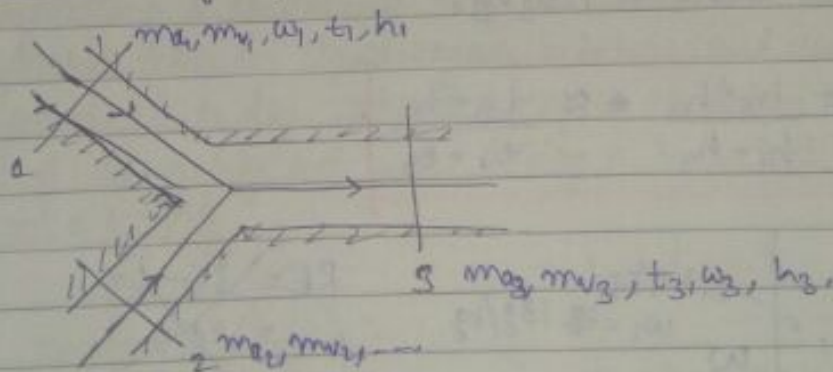 1 ma1, mv1, ω1, t1, h1
1
3 ma3, mv3, t3, ω3, h3,
2 ma2, mv2, ——